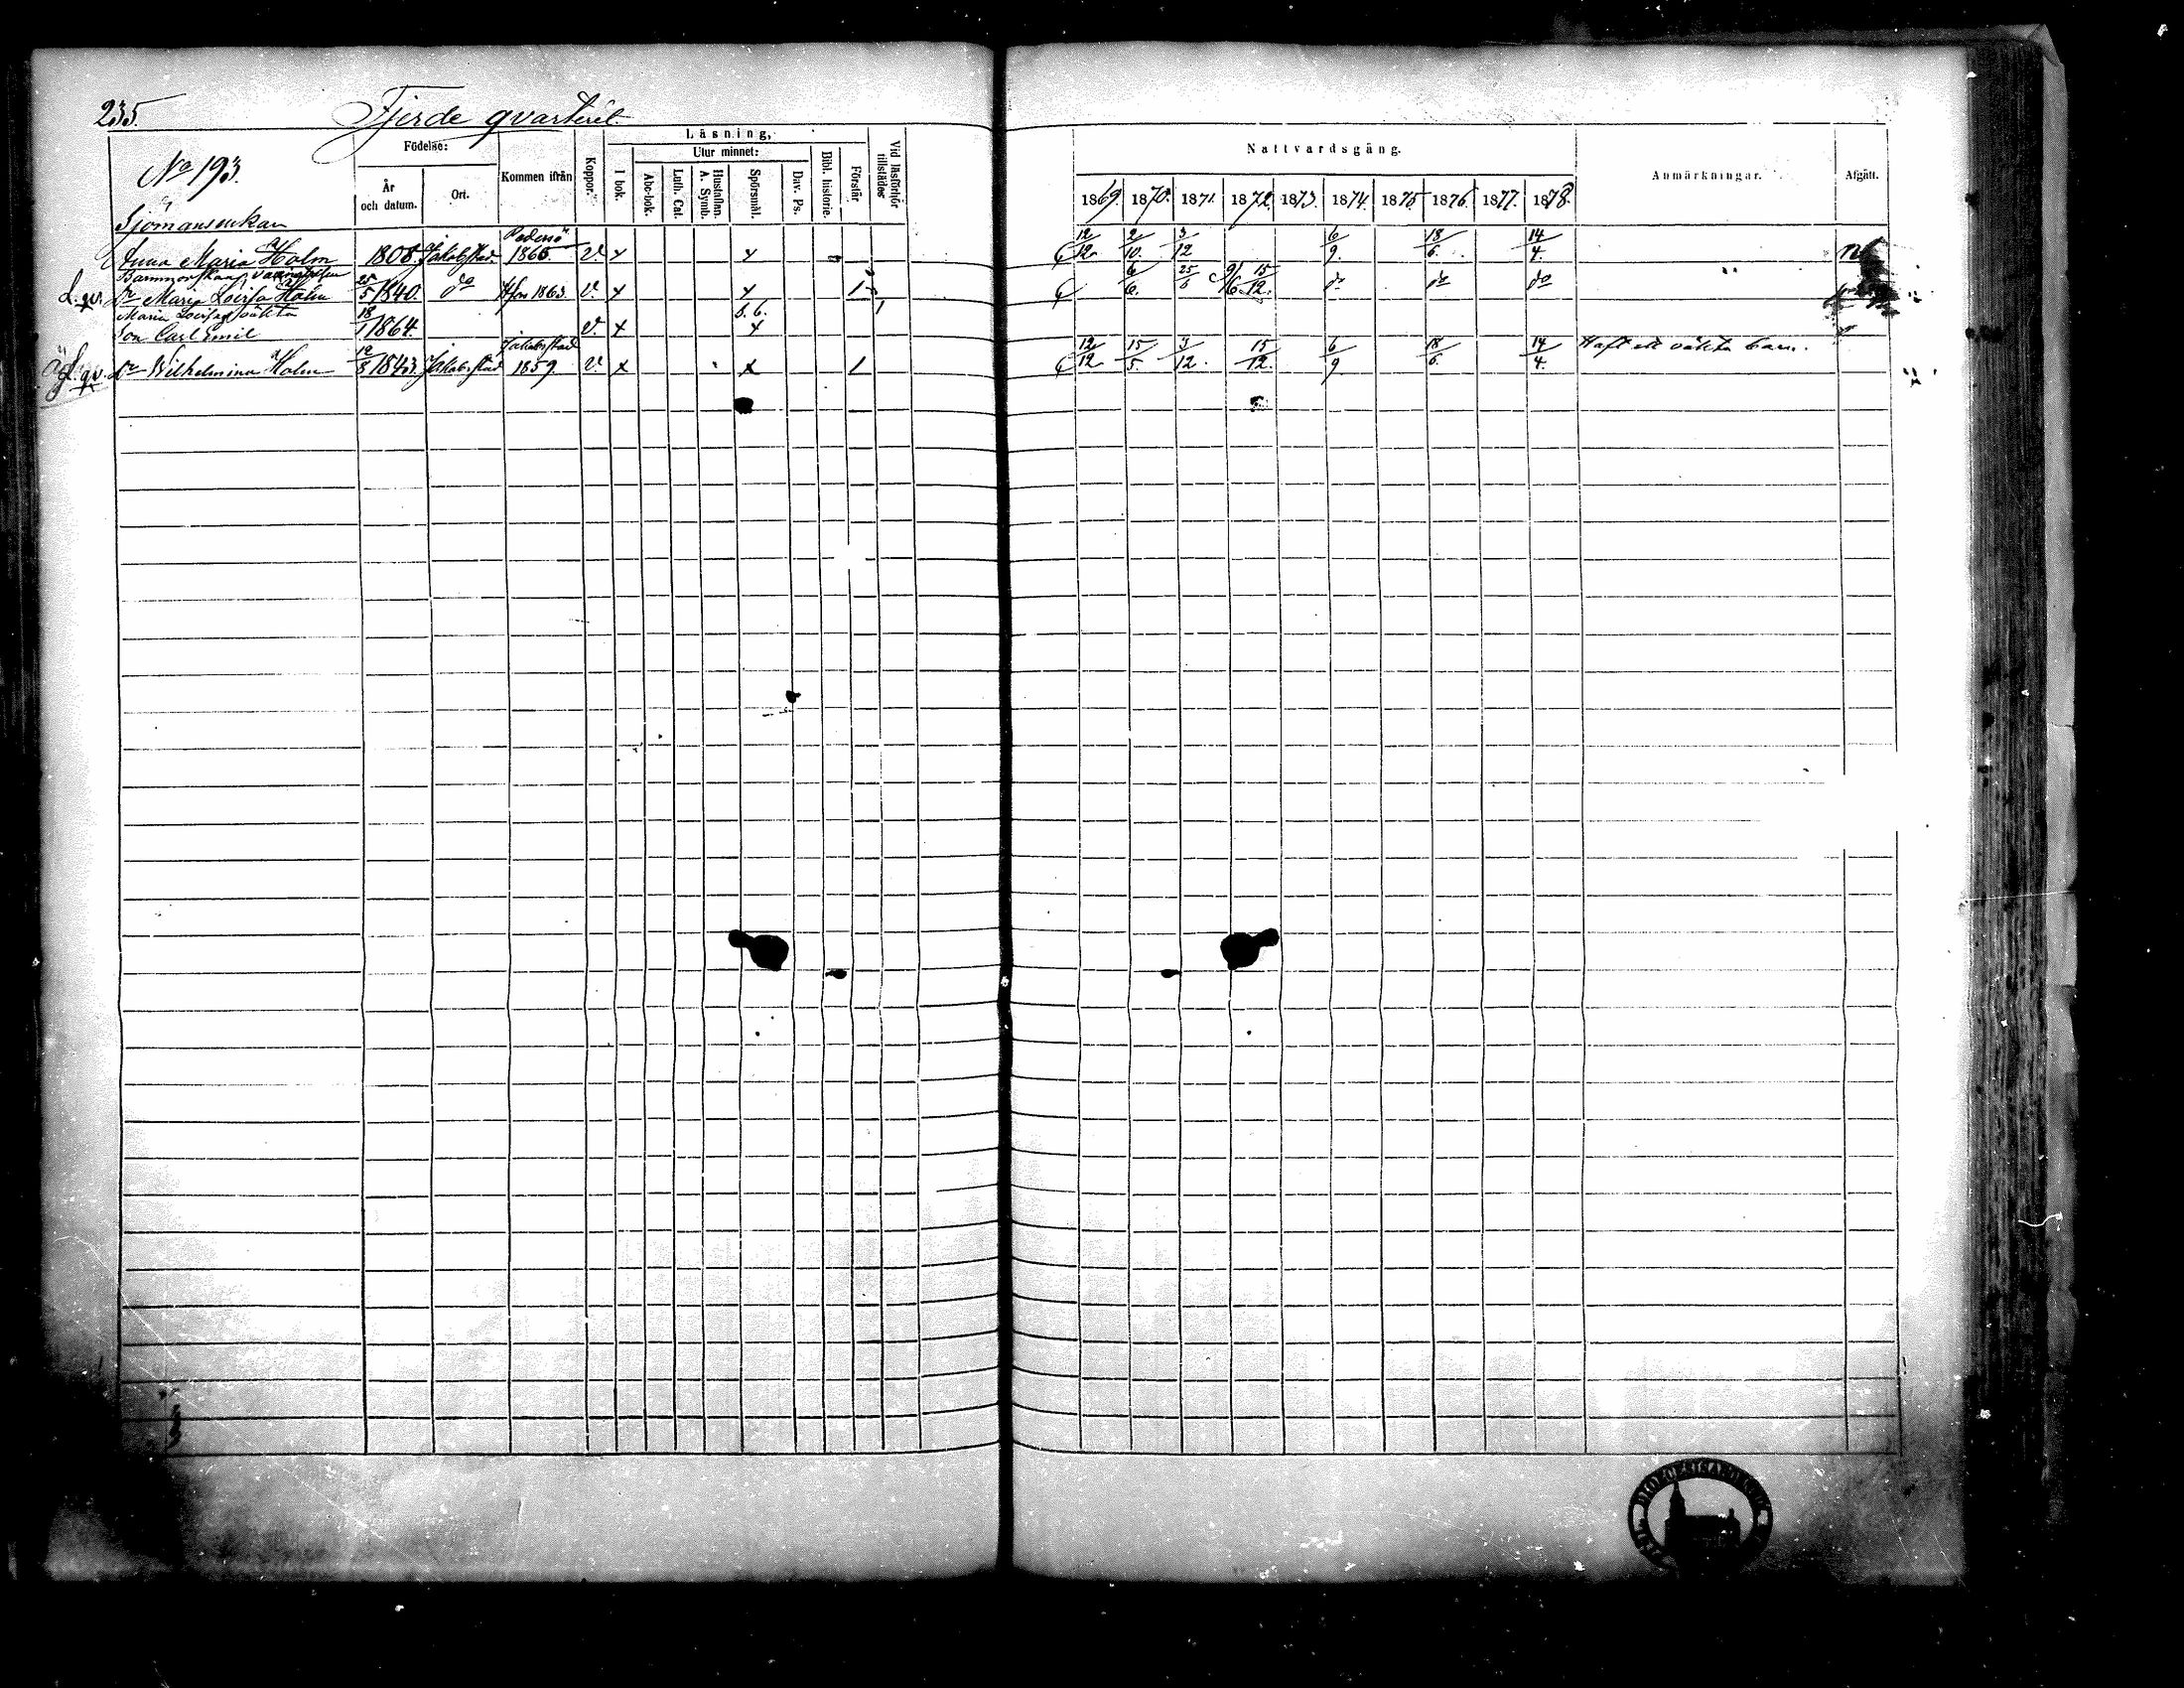 235.
Fjerde qvarteret.
No 193.
Födelse:
År och datum.
Ort.
Kommen ifrån
Koppor.
Läsning,
I bok.
Utur minnet:
Abc-bok.
Luth. Cat.
Hustaflan. A. Symb.
Spörsmål.
Dav. Ps.
Bibl. historie.
Förstår
Vid läsförhör tillstädes
Nattvardsgång.
1869. 1870. 1871. 1872. 1873. 1874. 1875. 1876. 1877. 1878.
Anmärkningar.
Afgått.
Sjömansenkan
Anna Maria Holm 1808. Jakobstad. Pedersö 1866. v. x x 12/12 2/10. 3/12 6/9. 18/6. 14/4.
Barnmorskan
Dr Maria Lovisa Holm 25/5 1840. do Hfors 1863. v. x x 1 6/6. 25/6 9/6 15/12. do do do
Maria Lovisas oäkta
Son Carl Emil 18/1 1864. v. x x
Dr Wilhelmina Holm 19/8 1843. Jakobstad Jakobstad 1859 v x x 1 12/12 15/5. 3/12. 15/12. 6/9 18/6. 14/4. Haft ett oäkta barn.